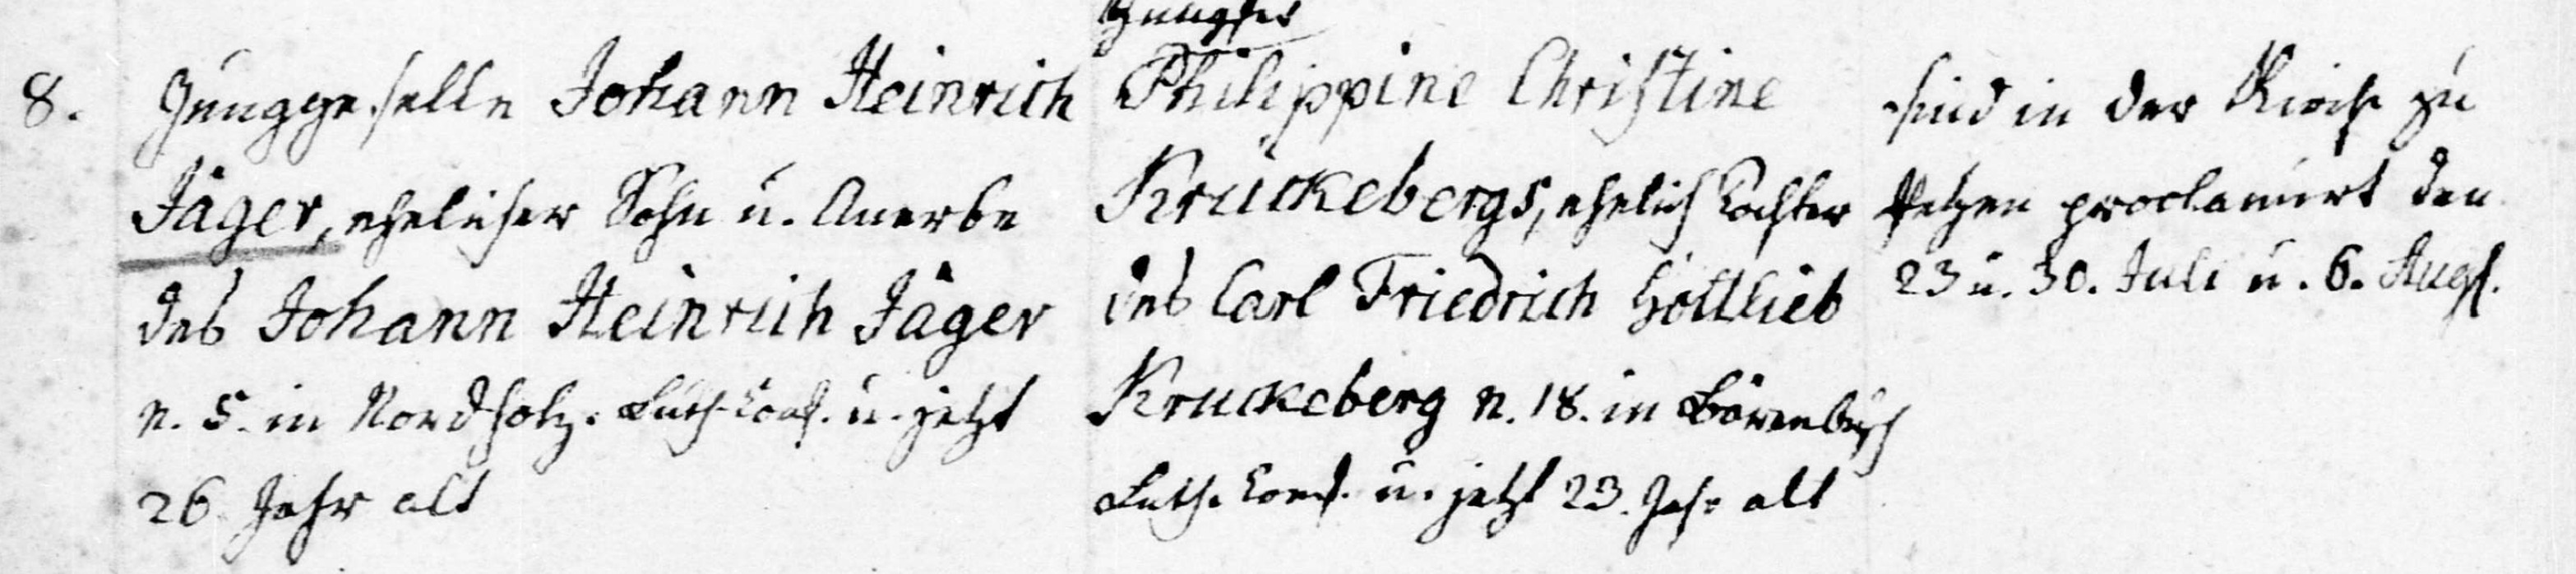 8.
Junggeselle Johann Heinrich
Jäger, ehelicher Sohn u. Anerbe
des Johann Heinrich Jäger
n. 5. in Nordholz. Luth. Conf. u. jetzt
26 Jahr alt
Jungfer
Philippine Christine
Kruckebergs, ehelich Tochter
des Carl Friedrich Gottlieb
Kruckeberg n. 18. in Bärenbusch
Luth. Conf. u. jetzt 23. Jahr alt
sind in der Kirche zu
Petzen proclamirt den
23 u. 30. Juli u. 6. Aug.